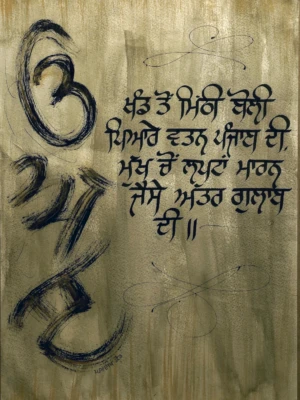 ੳ
ਅ
ੲ
ਖੰਡ ਤੋਂ ਮਿਠੀ ਬੋਲੀ
ਪਿਆਰੇ ਵਤਨ ਪੰਜਾਬ ਦੀ,
ਮੁੱਖ ਚੋਂ ਲਪਟਾਂ ਮਾਰਨ
ਜੈਸੇ ਅੱਤਰ ਗੁਲਾਬ
ਦੀ ॥